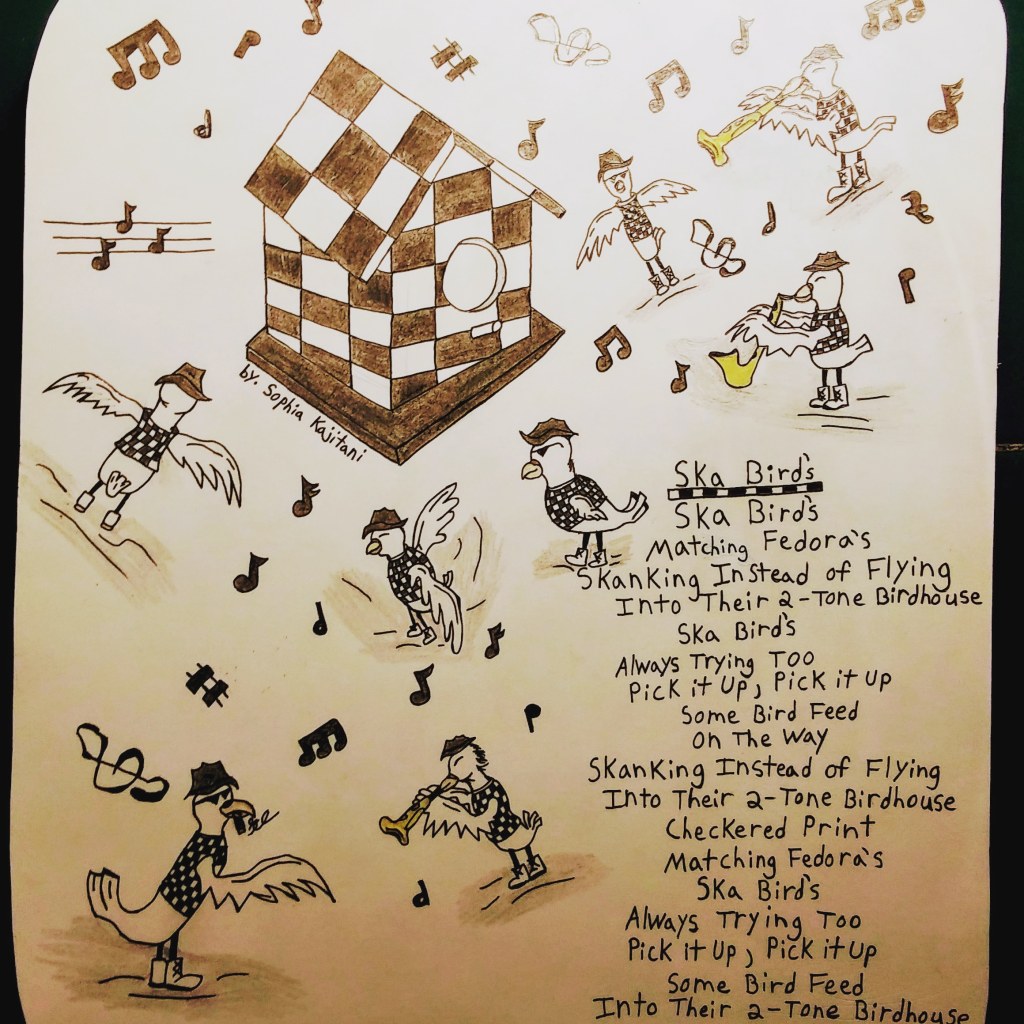 by. Sophia Kajitani
Ska Bird's
Ska Bird's
Matching Fedora's
Skanking Instead of Flying
Into Their 2-Tone Birdhouse
Ska Bird's
Always Trying Too
Pick it Up, Pick it Up
Some Bird Feed
On The Way
Skanking Instead of Flying
Into Their 2-Tone Birdhouse
Checkered Print
Matching Fedora's
Ska Bird's
Always Trying Too
Pick it Up, Pick it Up
Some Bird Feed
Into Their 2-Tone Birdhouse